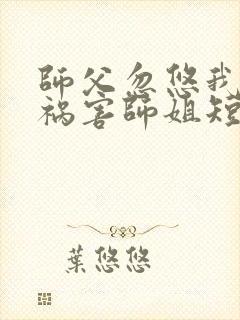 師父忽悠我
祸害師姐短
葉悠悠